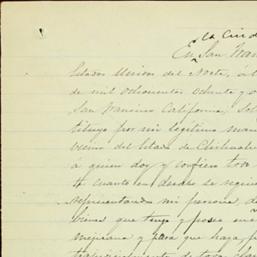 la Ciud
En San Fran
Estados Unidos del Norte, a l
de mil ochocientos ochenta y o
San Francisco California, Sol
tituyo por mi legitimo man
vecino del Estado de Chihuahua
á quien doy y confiero tod
to cuanto en derecho se requie
representando mi persona, de
bienes que tengo y poseo en
mejicana y para que haga, p